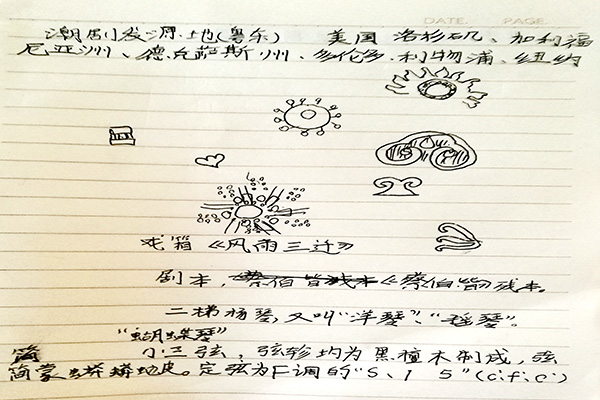 DATE. PAGE.
潮剧发源地(粤东) 美国 洛杉矶、加利福
尼亚州、德克萨斯州、多伦多、利物浦、纽约
戏箱《风雨三迁》
剧本,蔡伯皆残本《蔡伯皆》残本。
二梯扬琴,又叫“洋琴”、“瑶琴”。
“蝴蝶琴”
小三弦,弦轸均为黑檀木制成,弦
筒
筒蒙蟒 地皮。定弦为F调的“5、1 5”(c.f.c)